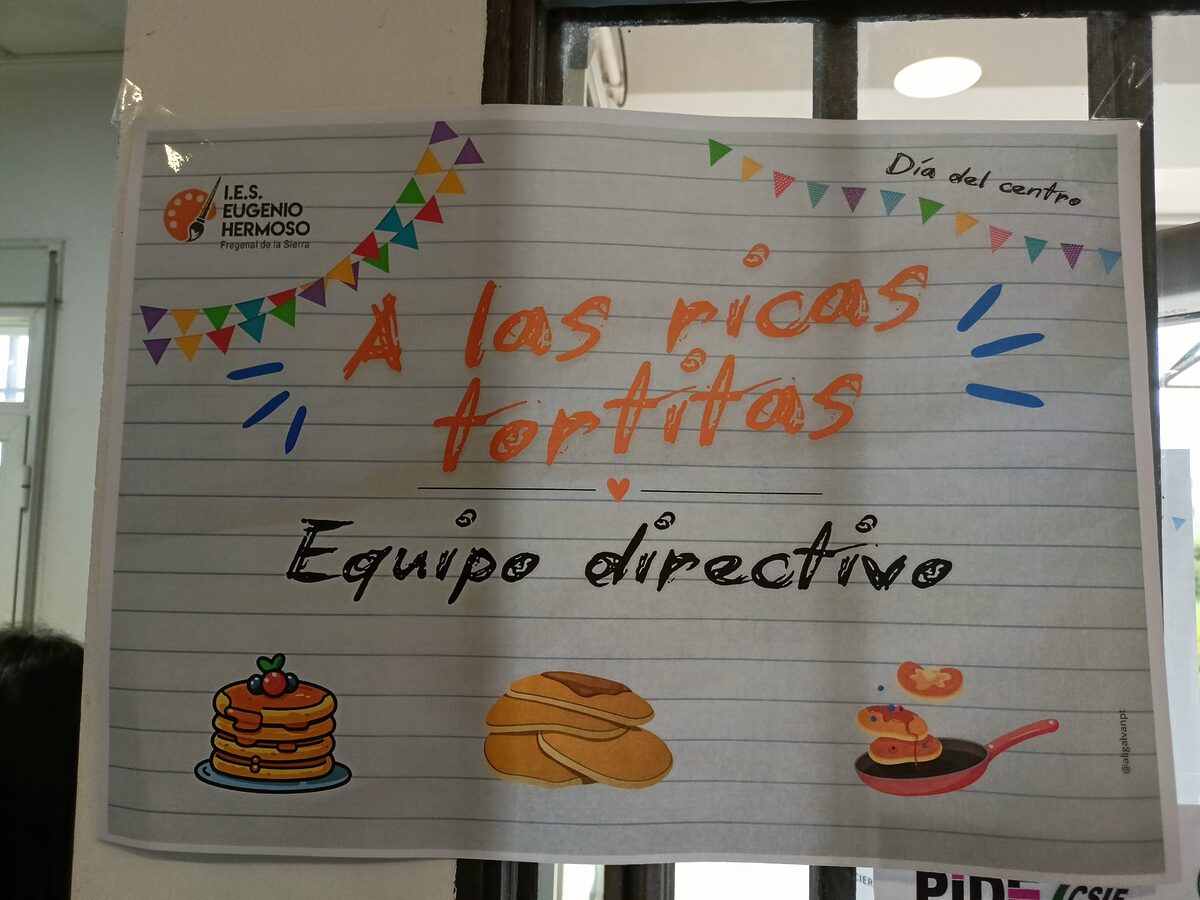 I.E.S.
EUGENIO
HERMOSO
Fregenal de la Sierra
Día del centro
A las ricas
tortitas
Equipo directivo
@aligalvanpt
PiDE
CSIF